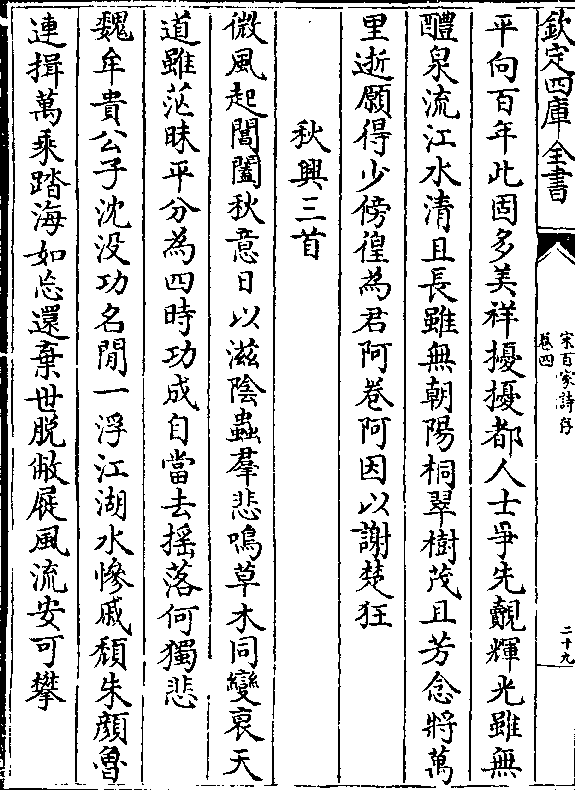 欽定四庫全書
宋百家詩存
卷四
二十九
平向百年此固多美祥擾擾都人士爭先覩輝光雖無
醴泉流江水清且長雖無朝陽桐翠樹茂且芳念將萬
里逝願得少傍徨為君阿卷阿因以謝楚狂
秋興三首
微風起閶闔秋意日以滋陰蟲羣悲鳴草木同變衰天
道雖茫昧平分為四時功成自當去揺落何獨悲
魏牟貴公子沈没功名間一浮江湖水慘戚頽朱顔魯
連揖萬乘踏海如忘還棄世脱敝屣風流安可攀